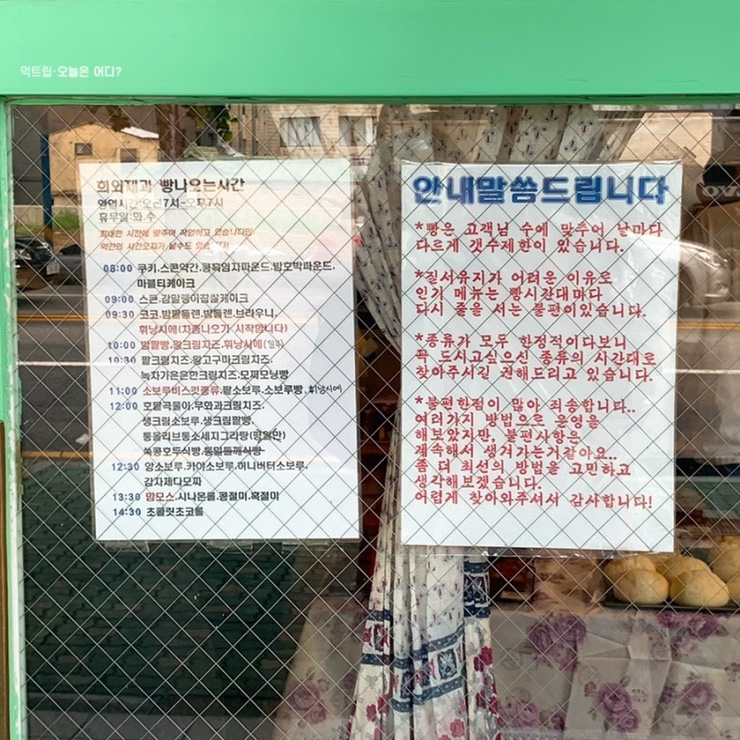 먹트립·오늘은 어디?
희와제과 빵나오는시간
영업시간:오전7시-오후7시
휴무일:화.수
최대한 시간에 맞추어 작업하고 있습니다만
약간의 시간오차가 날수도 있습니다!
08:00 쿠키.스콘약간.콩흑임자파운드.밤호박파운드.
마블티케이크
09:00 스콘.감말랭이찹쌀케이크
09:30 코코.밤팥들렌.밤들렌.브라우니.
휘낭시에(지종나오기 시작합니다)
10:00 밤팥빵.왕크림치즈.휘낭시에
10:30 팥크림치즈.왕고구마크림치즈.
녹차가은은한크림치즈.모찌모닝빵
11:00 소보루비스킷종류.팥소보루.소보루빵.휘낭시에
12:00 호밀곡물이.무화과크림치즈.
생크림소보루.생크림팥빵.
통올리브통소세지그라탕
쑥콩모두식빵.통밀들깨식빵
12:30 앙소보루.카야소보루.허니버터소보루.
감자제다모짜
13:30 맘모스.시나몬롤.콩절미.흑절미
14:30 초콜릿초코롤
안내말씀드립니다
*빵은 고객님 수에 맞추어 날마다
다르게 갯수제한이 있습니다.
*질서유지가 어려운 이유로
인기 메뉴는 빵시간대마다
다시 줄을 서는 불편이있습니다.
*종류가 모두 한정적이다보니
꼭 드시고싶으신 종류의 시간대로
찾아주시길 권해드리고 있습니다.
*불편한점이 많아 죄송합니다..
여러가지 방법으로 운영을
해보았지만, 불편사항은
계속해서 생겨가는거같아요..
좀 더 최선의 방법을 고민하고
생각해보겠습니다.
어렵게 찾아와주셔서 감사합니다!